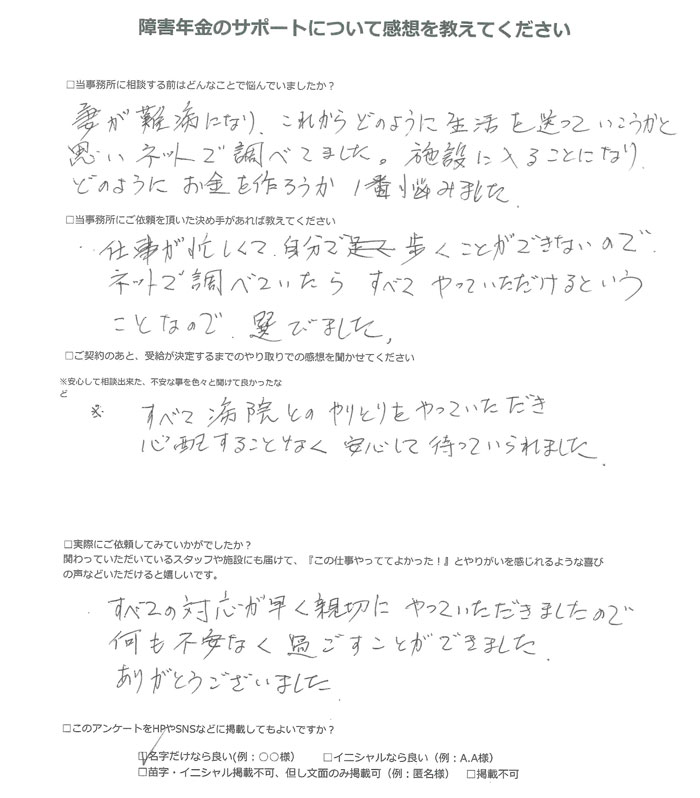 障害年金のサポートについて感想を教えてください
□当事務所に相談する前はどんなことで悩んでいましたか？
妻が難病になり、これからどのように生活を送っていこうかと
思いネットで調べてました。施設に入ることになり
どのようにお金を作ろうか1番悩みました
□当事務所にご依頼を頂いた決め手があれば教えてください
仕事が忙しくて、自分で歩くことができないので
ネットで調べていたらすべてやっていただけるという
ことなので、選びました。
□ご契約のあと、受給が決定するまでのやり取りでの感想を聞かせてください
※安心して相談出来た、不安な事を色々と聞けて良かったな
ど
※ すべて病院とのやりとりをやっていただき
心配することなく安心して待っていられました。
□実際にご依頼してみていかがでしたか？
関わっていただいているスタッフや施設にも届けて、『この仕事やっててよかった！』とやりがいを感じれるような喜び
の声などいただけると嬉しいです。
すべての対応が早く親切にやっていただきましたので
何も不安なく過ごすことができました。
ありがとうございました
□このアンケートをHPやSNSなどに掲載してもよいですか？
☑名字だけなら良い(例：○○様） □イニシャルなら良い（例：A.A様）
□苗字・イニシャル掲載不可、但し文面のみ掲載可（例：匿名様） □掲載不可